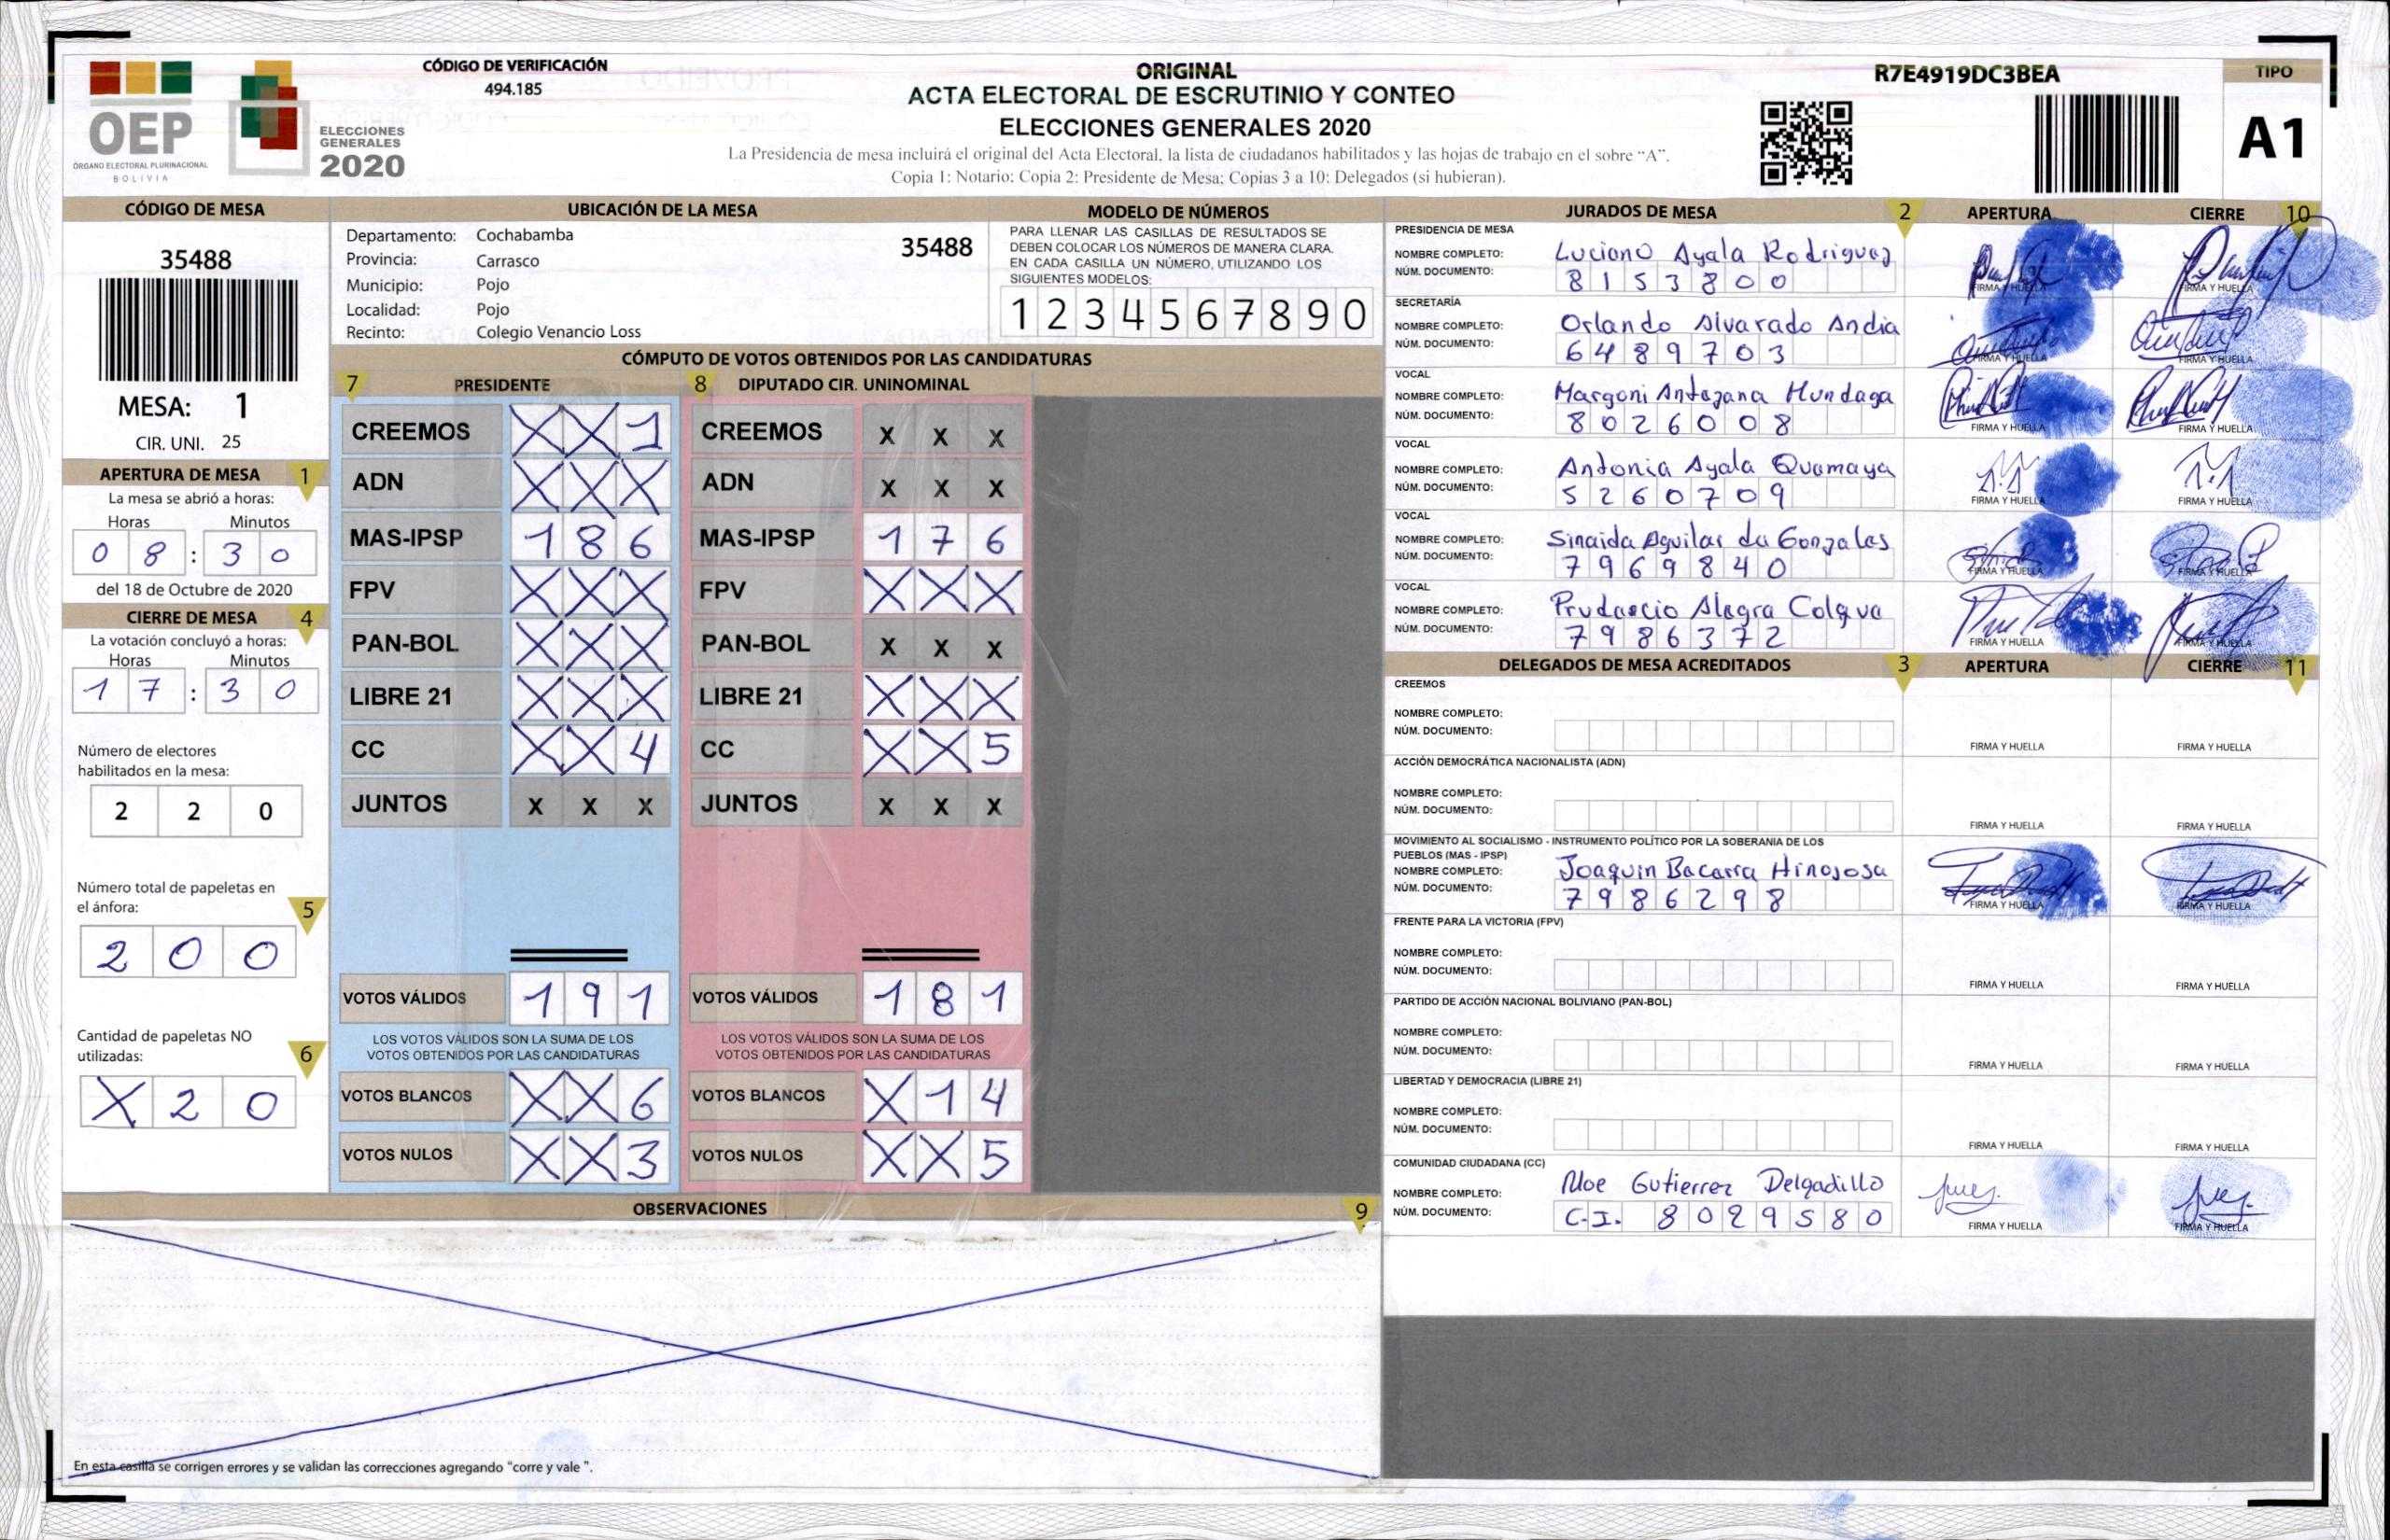 CÓDIGO DE VERIFICACIÓN
494.185
OEP
ÓRGANO ELECTORAL PLURINACIONAL
BOLIVIA
ELECCIONES
GENERALES
2020
ORIGINAL
ACTA ELECTORAL DE ESCRUTINIO Y CONTEO
ELECCIONES GENERALES 2020
La Presidencia de mesa incluirá el original del Acta Electoral, la lista de ciudadanos habilitados y las hojas de trabajo en el sobre “A”.
Copia 1: Notario; Copia 2: Presidente de Mesa; Copias 3 a 10: Delegados (si hubieran).
R7E4919DC3BEA
TIPO
A1
CÓDIGO DE MESA
35488
MESA: 1
CIR. UNI. 25
APERTURA DE MESA 1
La mesa se abrió a horas:
Horas Minutos
0 8 : 3 0
del 18 de Octubre de 2020
CIERRE DE MESA 4
La votación concluyó a horas:
Horas Minutos
1 7 : 3 0
Número de electores
habilitados en la mesa:
2 2 0
Número total de papeletas en
el ánfora: 5
2 0 0
Cantidad de papeletas NO
utilizadas: 6
X 2 0
UBICACIÓN DE LA MESA
Departamento: Cochabamba 35488
Provincia: Carrasco
Municipio: Pojo
Localidad: Pojo
Recinto: Colegio Venancio Loss
MODELO DE NÚMEROS
PARA LLENAR LAS CASILLAS DE RESULTADOS SE
DEBEN COLOCAR LOS NÚMEROS DE MANERA CLARA.
EN CADA CASILLA UN NÚMERO, UTILIZANDO LOS
SIGUIENTES MODELOS:
1 2 3 4 5 6 7 8 9 0
CÓMPUTO DE VOTOS OBTENIDOS POR LAS CANDIDATURAS
7 PRESIDENTE 8 DIPUTADO CIR. UNINOMINAL
CREEMOS X X 1 CREEMOS X X X
ADN X X X ADN X X X
MAS-IPSP 1 8 6 MAS-IPSP 1 7 6
FPV X X X FPV X X X
PAN-BOL X X X PAN-BOL X X X
LIBRE 21 X X X LIBRE 21 X X X
CC X X 4 CC X X 5
JUNTOS X X X JUNTOS X X X
VOTOS VÁLIDOS 1 9 1 VOTOS VÁLIDOS 1 8 1
LOS VOTOS VÁLIDOS SON LA SUMA DE LOS LOS VOTOS VÁLIDOS SON LA SUMA DE LOS
VOTOS OBTENIDOS POR LAS CANDIDATURAS VOTOS OBTENIDOS POR LAS CANDIDATURAS
VOTOS BLANCOS X X 6 VOTOS BLANCOS X 1 4
VOTOS NULOS X X 3 VOTOS NULOS X X 5
OBSERVACIONES 9
En esta casilla se corrigen errores y se validan las correcciones agregando "corre y vale ".
JURADOS DE MESA 2 APERTURA CIERRE 10
PRESIDENCIA DE MESA
NOMBRE COMPLETO: Luciano Ayala Rodriguez
NÚM. DOCUMENTO: 8153800
FIRMA Y HUELLA FIRMA Y HUELLA
SECRETARÍA
NOMBRE COMPLETO: Orlando Alvarado Andia
NÚM. DOCUMENTO: 6489703
FIRMA Y HUELLA FIRMA Y HUELLA
VOCAL
NOMBRE COMPLETO: Margoni Antezana Mundaga
NÚM. DOCUMENTO: 8026008
FIRMA Y HUELLA FIRMA Y HUELLA
VOCAL
NOMBRE COMPLETO: Antonia Ayala Quamaya
NÚM. DOCUMENTO: 5260709
FIRMA Y HUELLA FIRMA Y HUELLA
VOCAL
NOMBRE COMPLETO: Sinaida Aguilar de Gonzales
NÚM. DOCUMENTO: 7969840
FIRMA Y HUELLA FIRMA Y HUELLA
VOCAL
NOMBRE COMPLETO: Alegra Colque
NÚM. DOCUMENTO: 7986372
FIRMA Y HUELLA FIRMA Y HUELLA
DELEGADOS DE MESA ACREDITADOS 3 APERTURA CIERRE 11
CREEMOS
NOMBRE COMPLETO:
NÚM. DOCUMENTO:
FIRMA Y HUELLA FIRMA Y HUELLA
ACCIÓN DEMOCRÁTICA NACIONALISTA (ADN)
NOMBRE COMPLETO:
NÚM. DOCUMENTO:
FIRMA Y HUELLA FIRMA Y HUELLA
MOVIMIENTO AL SOCIALISMO - INSTRUMENTO POLÍTICO POR LA SOBERANIA DE LOS
PUEBLOS (MAS - IPSP)
NOMBRE COMPLETO: Joaquin Bacarra Hinojosa
NÚM. DOCUMENTO: 7986298
FIRMA Y HUELLA FIRMA Y HUELLA
FRENTE PARA LA VICTORIA (FPV)
NOMBRE COMPLETO:
NÚM. DOCUMENTO:
FIRMA Y HUELLA FIRMA Y HUELLA
PARTIDO DE ACCIÓN NACIONAL BOLIVIANO (PAN-BOL)
NOMBRE COMPLETO:
NÚM. DOCUMENTO:
FIRMA Y HUELLA FIRMA Y HUELLA
LIBERTAD Y DEMOCRACIA (LIBRE 21)
NOMBRE COMPLETO:
NÚM. DOCUMENTO:
FIRMA Y HUELLA FIRMA Y HUELLA
COMUNIDAD CIUDADANA (CC)
NOMBRE COMPLETO: Noe Gutierrez Delgadillo
NÚM. DOCUMENTO: C.I. 8029580
FIRMA Y HUELLA FIRMA Y HUELLA